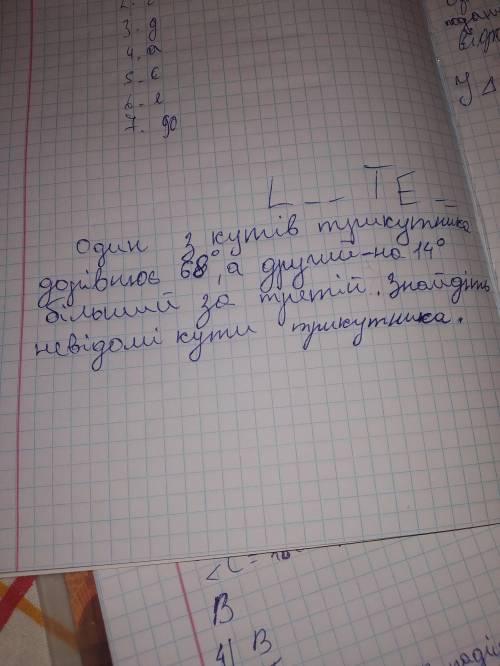 3. д
4. а
5. є
7. до
L _ _ T E _
Один з кутів трикутника
дорівнює 68°, а другий - на 14°
більший за третій. Знайдіть
невідомі кути трикутника.
В
4) В